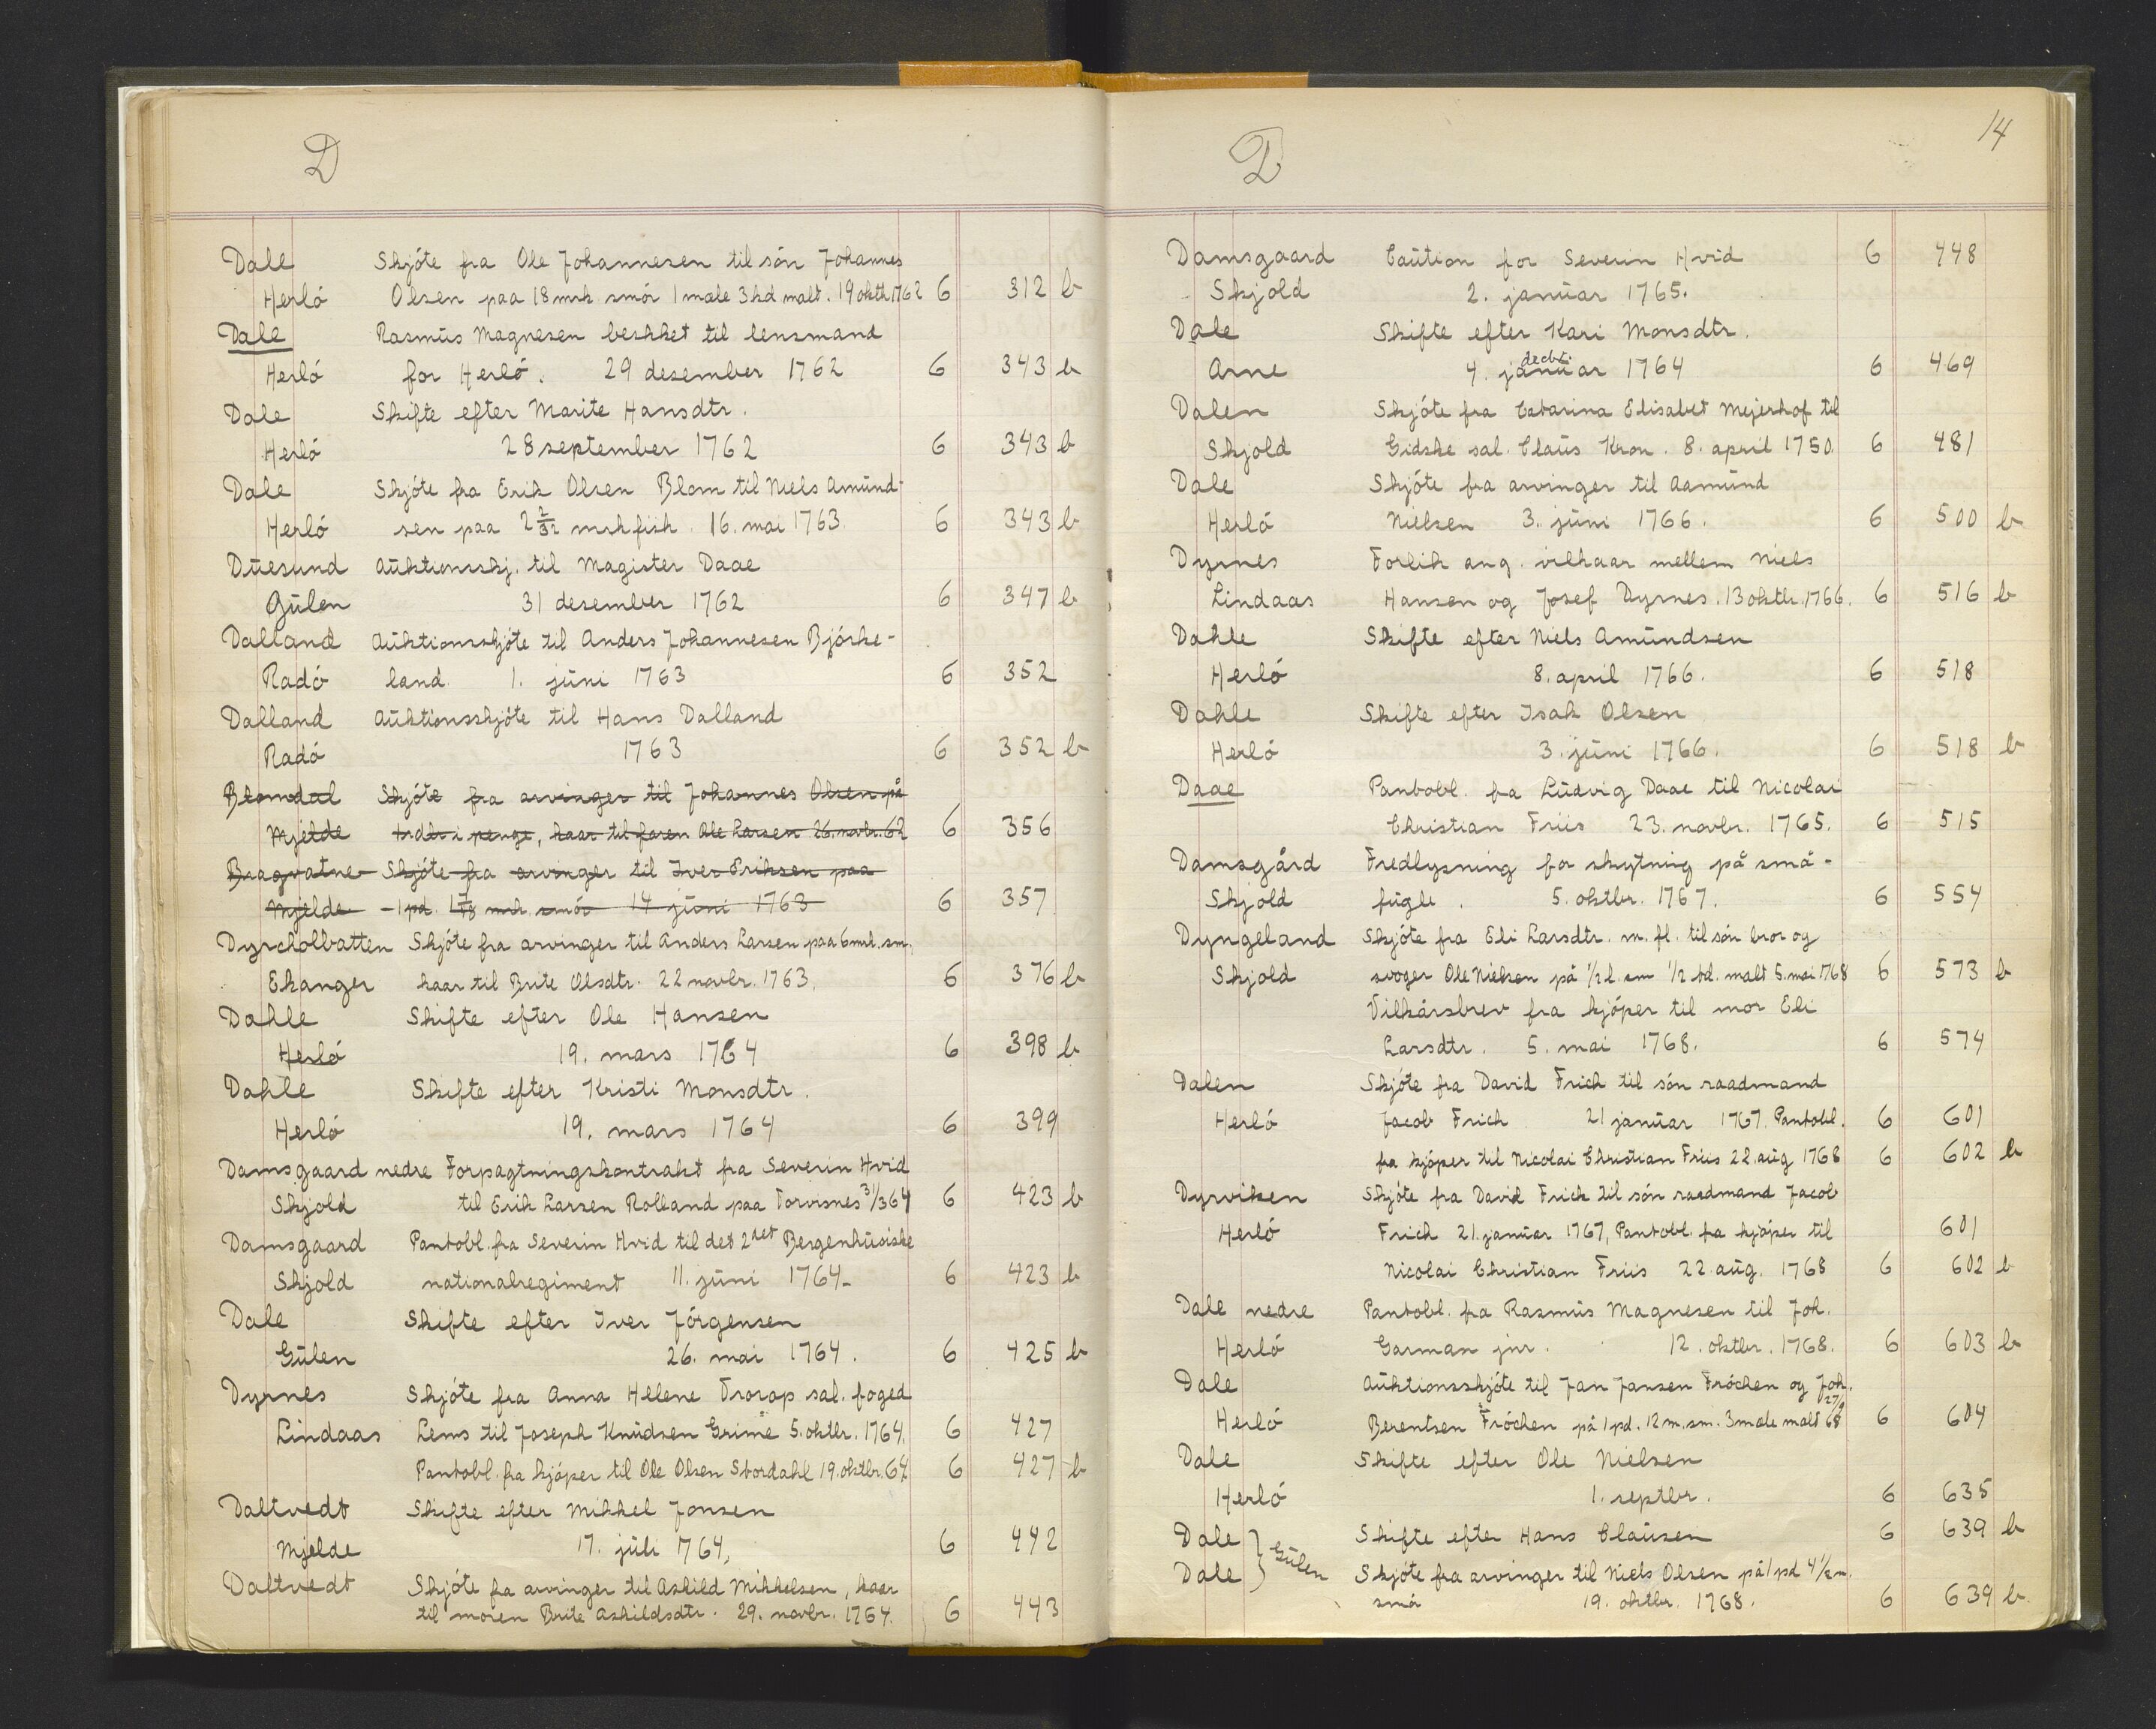 D
Dale Skjóte fra Ole Johannesen til són Johannes
Herló Olsen paa 18 mrk smór 1 mæle 3 hd malt. 19 oktb 1762 6 312 b
Dale Rasmus Magnesen beskket til lensmand
Herló for Herló. 29 desember 1762 6 343 b
Dale Skifte efter Marite Hansdtr.
Herló 28 september 1762 6 343 b
Dale Skjóte fra Erik Olsen Blom til Niels Amund-
Herló sen paa 2 2/32 mrk fisk. 16. mai 1763. 6 343 b
Duesund Auktionsskj. til Magister Daae
Gulen 31 desember 1762 6 347 b
Dalland Auktionsskjóte til Anders Johannesen Bjórke-
Radó land. 1. juni 1763 6 352
Dalland Auktionsskjóte til Hans Dalland
Radó 1763 6 352 b
Blomdal Skjóte fra arvinger til Johannes Olsen på
Mjelde i penge, kaar til faren Ole Larsen 26. novbr. 62 6 356
Bragvatne Skjóte fra arvinger til Iver Eriksen paa
Mjelde 1 pd. mrk. smór 14 juni 1763 6 357
Dyrcholbatten Skjóte fra arvinger til Anders Larsen paa 6 mrk. sm,
Ekanger kaar til Brite Olsdtr. 22 novbr. 1763. 6 376 b
Dahle Skifte efter Ole Hansen
Herló 19. mars 1764 6 398 b
Dahle Skifte efter Kristi Monsdtr.
Herló 19. mars 1764 6 399
Damsgaard nedre Forpagtningskontrakt fra Severin Hvid
Skjold til Erik Larsen Rolland paa Torvisnes 31/3 64 6 423 b
Damsgaard Pantobl. fra Severin Hvid til det 2det Bergenhusiske
Skjold nationalregiment 11. juni 1764- 6 423 b
Dale Skifte efter Iver Jórgensen
Gulen 26. mai 1764. 6 425 b
Dyrnes Skjóte fra Anna Helene Trorop sal. foged
Lindaas Lems til Joseph Knudsen Grime 5. oktbr. 1764. 6 427
Pantobl. fra kjóper til Ole Olsen Stordahl 19. oktbr. 64 6 427 b
Daltvedt Skifte efter Mikkel Jonsen
Mjelde 17. juli 764, 6 442
Daltvedt Skjóte fra arvinger til Askild Mikkelsen, kaar
til moren Brite Askildsdtr. 29. novbr. 1764. 6 443
14
D
Damsgaard Caution for Severin Hvid 6 448
Skjold 2. januar 1765.
Dale Skifte efter Kari Monsdtr.
decbr.
Arne 4. januar 1764 6 469
Dalen Skjóte fra Catarina Elisabet Mejerhof til
Skjold Gidske sal. Claus Kron. 8. april 1750. 6 481
Dale Skjóte fra arvinger til Aamund
Herló Nielsen 3. juni 1766. 6 500 b
Dyrnes Forlik ang. vilkaar mellem Niels
Lindaas Hansen og Josef Dyrnes. 13 oktbr. 1766. 6 516 b
Dahle Skifte efter Niels Amundsen
Herló 8. april 1766. 6 518
Dahle Skifte efter Isak Olsen
Herló 3. juni 1766. 6 518 b
Daae Pantobl. fra Ludvig Daae til Nicolai
Christian Friis 23. novbr. 1765. 6 515
Damsgård Fredlysning for skytning på små-
Skjold fugle. 5. oktbr. 1767. 6 554
Dyngeland Skjóte fra Eli Larsdtr. m. fl. til són bror og
Skjold svoger Ole Nielsen på 1/2 l. sm 1/2 td. malt 5. mai 1768 6 573 b
Vilkårsbrev fra kjóper til mor Eli
Larsdtr. 5. mai 1768. 6 574
Dalen Skjóte fra David Frich til són raadmand
Herló Jacob Frich 21 januar 1767. Pantobl. 6 601
fra kjóper til Nicolai Christian Friis 22. aug 1768 6 602 b
Dyrviken Skjóte fra David Frich til són raadmand Jacob
Herló Frich 21. januar 1767, Pantobl. fra kjóper til 601
Nicolai Christian Friis 22. aug. 1768 6 602 b
Dale nedre Pantobl. fra Rasmus Magnesen til Joh.
Herló Garman jnr. 12. oktbr. 1768. 6 603 b
Dale Auktionsskjóte til Jan Jansen Fróchen og Joh.
Herló Berentsen Fróchen på 1 pd. 12 m. sm. 3 mæle malt 27/9 68 6 604
Dale Skifte efter Ole Nielsen
Herló 1. septbr. 6 635
Dale } Gulen Skifte efter Hans Clausen 6 639 b
Dale Skjóte fra arvinger til Niels Olsen på 1 pd 4 1/2 m.
små 19. oktbr. 1768. 6 639 b